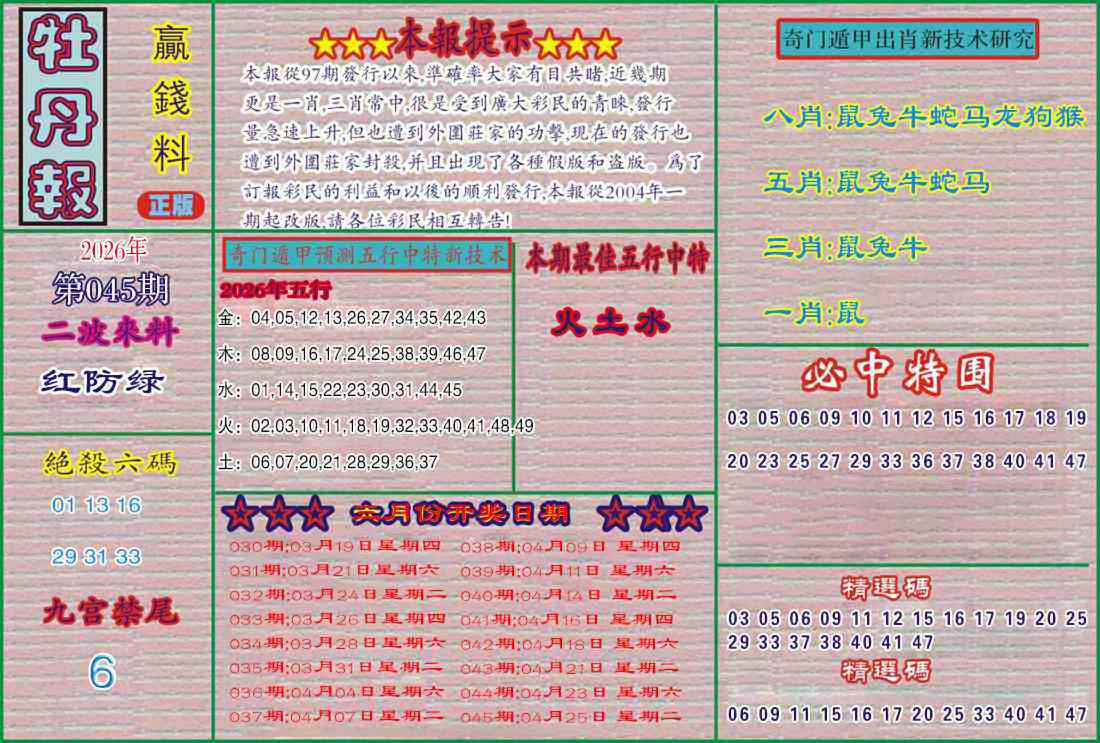 牡丹報
贏錢料
正版
★★★本報提示★★★
本報從97期發行以來,準確率大家有目共睹,近幾期
更是一肖,三肖常中,很是受到廣大彩民的青睞,發行
量急速上升,但也遭到外圍莊家的功擊,現在的發行也
遭到外圍莊家封殺,并且出現了各種假版和盗版。爲了
訂報彩民的利益和以後的順利發行,本報從2004年一
期起改版,請各位彩民相互轉告!
奇门遁甲出肖新技术研究
八肖:鼠兔牛蛇马龙狗猴
五肖:鼠兔牛蛇马
三肖:鼠兔牛
一肖:鼠
2026年
第045期
二波來料
红防绿
奇门遁甲預测五行中特新技术
2026年五行
金：04,05,12,13,26,27,34,35,42,43
木：08,09,16,17,24,25,38,39,46,47
水：01,14,15,22,23,30,31,44,45
火：02,03,10,11,18,19,32,33,40,41,48,49
土：06,07,20,21,28,29,36,37
本期最佳五行中特
火土水
必中特围
03 05 06 09 10 11 12 15 16 17 18 19
20 23 25 27 29 33 36 37 38 40 41 47
絕殺六碼
01 13 16
29 31 33
九宫禁尾
6
★★★ 六月份开奖日期 ★★★
030期;03月19日星期四 038期;04月09日 星期四
031期;03月21日星期六 039期;04月11日 星期六
032期;03月24日星期二 040期;04月14日 星期二
033期;03月26日星期四 041期;04月16日 星期四
034期;03月28日星期六 042期;04月18日 星期六
035期;03月31日星期二 043期;04月21日 星期二
036期;04月04日星期六 044期;04月23日 星期六
037期;04月07日星期二 045期;04月25日 星期二
精選碼
03 05 06 09 11 12 15 16 17 19 20 25
29 33 37 38 40 41 47
精選碼
06 09 11 15 16 17 20 25 33 40 41 47